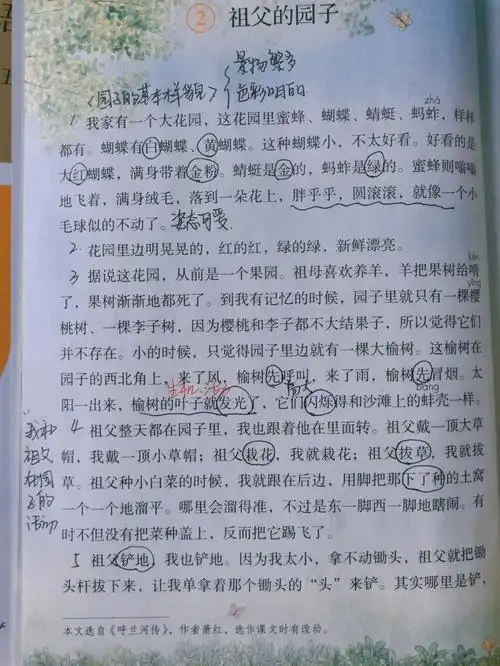 2 祖父的园子
景物繁多
〈园子的基本样貌〉
色彩明丽
1 我家有一个大花园，这花园里蜜蜂、蝴蝶、蜻蜓、蚂蚱，样样
zhà
都有。蝴蝶有白蝴蝶、黄蝴蝶。这种蝴蝶小，不太好看。好看的是
大红蝴蝶，满身带着金粉。蜻蜓是金的，蚂蚱是绿的。蜜蜂则嗡嗡
地飞着，满身绒毛，落到一朵花上，胖乎乎，圆滚滚，就像一个小
毛球似的不动了。姿态可爱
2. 花园里边明晃晃的，红的红，绿的绿，新鲜漂亮。
kěn
3 据说这花园，从前是一个果园。祖母喜欢养羊，羊把果树给啃
yīng
了，果树渐渐地都死了。到我有记忆的时候，园子里就只有一棵樱
桃树、一棵李子树，因为樱桃和李子都不大结果子，所以觉得它们
并不存在。小的时候，只觉得园子里边就有一棵大榆树。这榆树在
园子的西北角上，来了风，榆树先呼叫，来了雨，榆树先冒烟。太
bàng
阳一出来，榆树的叶子就发光了，它们闪烁得和沙滩上的蚌壳一样。
4 祖父整天都在园子里，我也跟着他在里面转。祖父戴一顶大草
帽，我戴一顶小草帽；祖父栽花，我就栽花；祖父拔草，我就拔
草。祖父种小白菜的时候，我就跟在后边，用脚把那下了种的土窝
一个一个地溜平。哪里会溜得准，不过是东一脚西一脚地瞎闹。有
时不但没有把菜种盖上，反而把它踢飞了。
我和
祖父
在园
子的
活动
5 祖父铲地，我也铲地。因为我太小，拿不动锄头，祖父就把锄
头杆拔下来，让我单拿着那个锄头的“头”来铲。其实哪里是铲，
本文选自《呼兰河传》，作者萧红，选作课文时有改动。